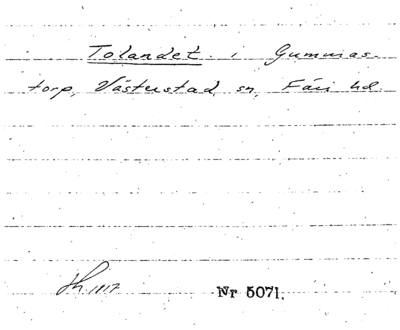 Tolandet i Gummas-
torp, Västerstad sn, Färs hd.
1917 Nr 5071.